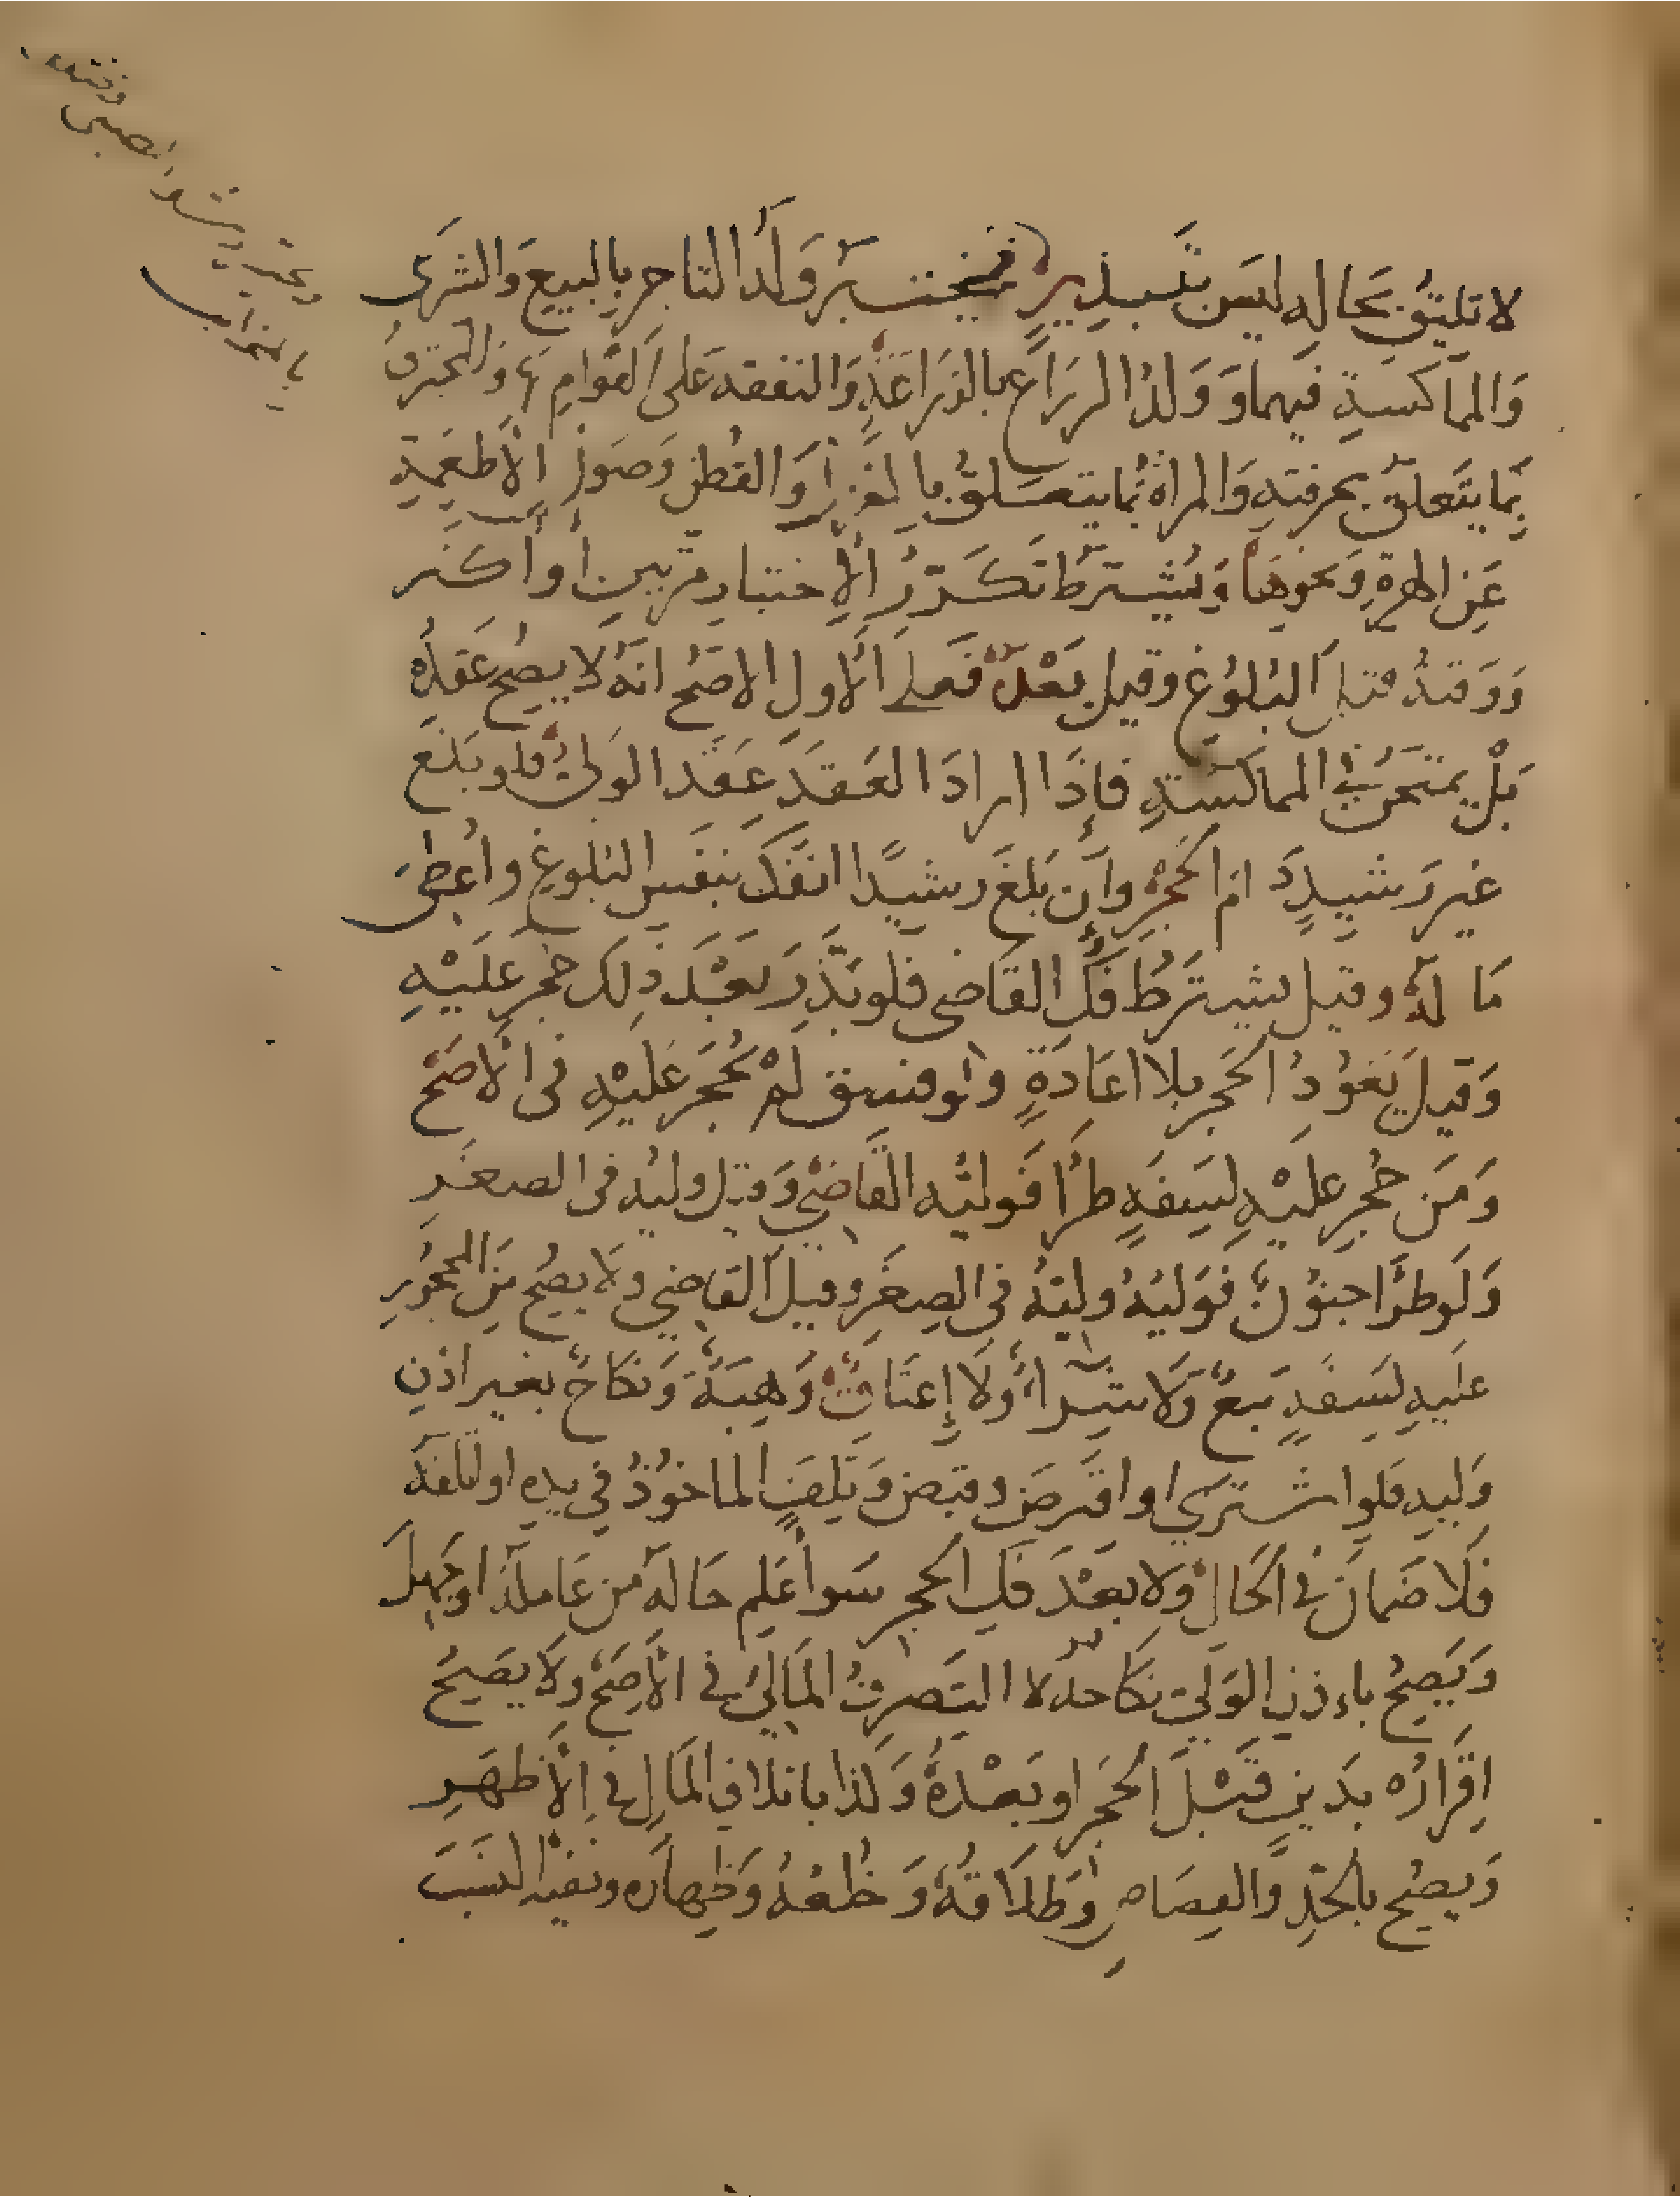 لا تليق بحاله ليس بتبذير فيختبر ولد التاجر بالبيع والشرى
والمماكسة فيهما وولد الزراع بالزراعة والنفقه على القوام بها والمحترف
بما يتعلق بحرفته والمراة بما يتعلق بالغزل والقطن وصون الاطعمة
عن الهرة ونحوها ويشترط تكرر الاختبار مرتين أو أكثر
ووقته قبل البلوغ وقيل بعده فعلى الاول الاصح انه لا يصح عقده
بل يمتحن في المماكسة فإذا اراد العقد عقد الولي فلو بلغ
غير رشيد دام الحجر وإن بلغ رشيدا انفك بنفس البلوغ واعطى
ماله وقيل يشترط فك القاضى فلو بذر بعد ذلك حجر عليه
وقيل يعود الحجر بلا اعادة ولو فسق لم يحجر عليه فى الاصح
ومن حجر عليه لسفه طرأ فوليه القاضي وقيل وليه فى الصغر
ولو طرأ جنون فوليه وليه في الصغر وقيل القاضي ولا يصح من المحجور
عليه لسفه بيع ولا شراء ولا إعتاق وهبة ونكاح بغير اذن
وليه فلو اشترى او اقترض وقبض وتلف الماخوذ في يده او اتلفه
فلا ضمان في الحال ولا بعد فك الحجر سوا علم حاله من عامله او جهل
ويصح باذن الولي نكاحه لا التصرف المالي في الاصح ولا يصح
اقراره بدين قبل الحجر او بعده وكذا باتلاف المال في الاظهر
ويصح بالحد والقصاص وطلاقه وخلعه وظهاره ونفيه النسب